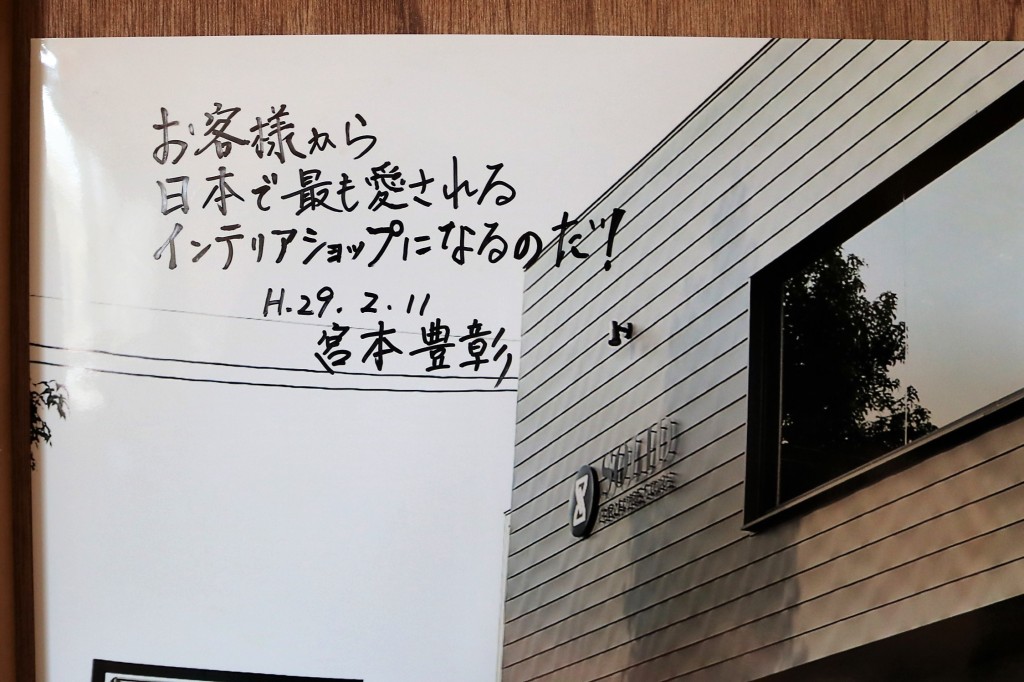 お客様から
日本で最も愛される
インテリアショップになるのだ!
H.29.2.11
宮本豊彰